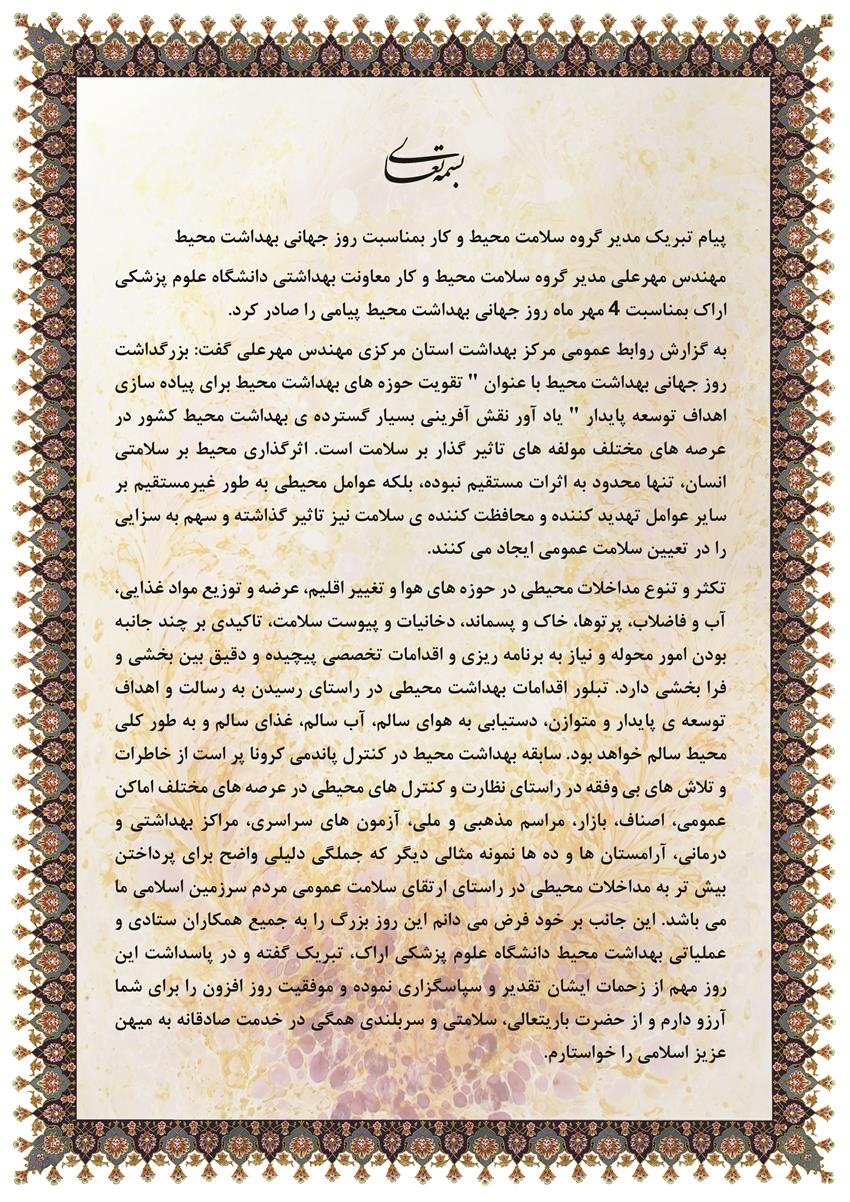 بسمه تعالی
پیام تبریک مدیر گروه سلامت محیط و کار بمناسبت روز جهانی بهداشت محیط
مهندس مهرعلی مدیر گروه سلامت محیط و کار معاونت بهداشتی دانشگاه علوم پزشکی
اراک بمناسبت 4 مهر ماه روز جهانی بهداشت محیط پیامی را صادر کرد.
به گزارش روابط عمومی مرکز بهداشت استان مرکزی مهندس مهرعلی گفت: بزرگداشت
روز جهانی بهداشت محیط با عنوان " تقویت حوزه های بهداشت محیط برای پیاده سازی
اهداف توسعه پایدار " یاد آور نقش آفرینی بسیار گسترده ی بهداشت محیط کشور در
عرصه های مختلف مولفه های تاثیر گذار بر سلامت است. اثرگذاری محیط بر سلامتی
انسان، تنها محدود به اثرات مستقیم نبوده، بلکه عوامل محیطی به طور غیرمستقیم بر
سایر عوامل تهدید کننده و محافظت کننده ی سلامت نیز تاثیر گذاشته و سهم به سزایی
را در تعیین سلامت عمومی ایجاد می کنند.
تکثر و تنوع مداخلات محیطی در حوزه های هوا و تغییر اقلیم، عرضه و توزیع مواد غذایی،
آب و فاضلاب، پرتوها، خاک و پسماند، دخانیات و پیوست سلامت، تاکیدی بر چند جانبه
بودن امور محوله و نیاز به برنامه ریزی و اقدامات تخصصی پیچیده و دقیق بین بخشی و
فرا بخشی دارد. تبلور اقدامات بهداشت محیطی در راستای رسیدن به رسالت و اهداف
توسعه ی پایدار و متوازن، دستیابی به هوای سالم، آب سالم، غذای سالم و به طور کلی
محیط سالم خواهد بود. سابقه بهداشت محیط در کنترل پاندمی کرونا پر است از خاطرات
و تلاش های بی وقفه در راستای نظارت و کنترل های محیطی در عرصه های مختلف اماکن
عمومی، اصناف، بازار، مراسم مذهبی و ملی، آزمون های سراسری، مراکز بهداشتی و
درمانی، آرامستان ها و ده ها نمونه مثالی دیگر که جملگی دلیلی واضح برای پرداختن
بیش تر به مداخلات محیطی در راستای ارتقای سلامت عمومی مردم سرزمین اسلامی ما
می باشد. این جانب بر خود فرض می دانم این روز بزرگ را به جمیع همکاران ستادی و
عملیاتی بهداشت محیط دانشگاه علوم پزشکی اراک، تبریک گفته و در پاسداشت این
روز مهم از زحمات ایشان تقدیر و سپاسگزاری نموده و موفقیت روز افزون را برای شما
آرزو دارم و از حضرت باریتعالی، سلامتی و سربلندی همگی در خدمت صادقانه به میهن
عزیز اسلامی را خواستارم.